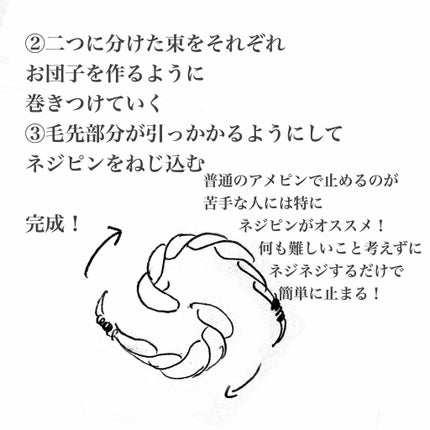 ②二つに分けた束をそれぞれ
お団子を作るように
巻きつけていく
③毛先部分が引っかかるようにして
ネジピンをねじ込む
普通のアメピンで止めるのが
苦手な人には特に
ネジピンがオススメ！
何も難しいこと考えずに
ネジネジするだけで
簡単に止まる！
完成！